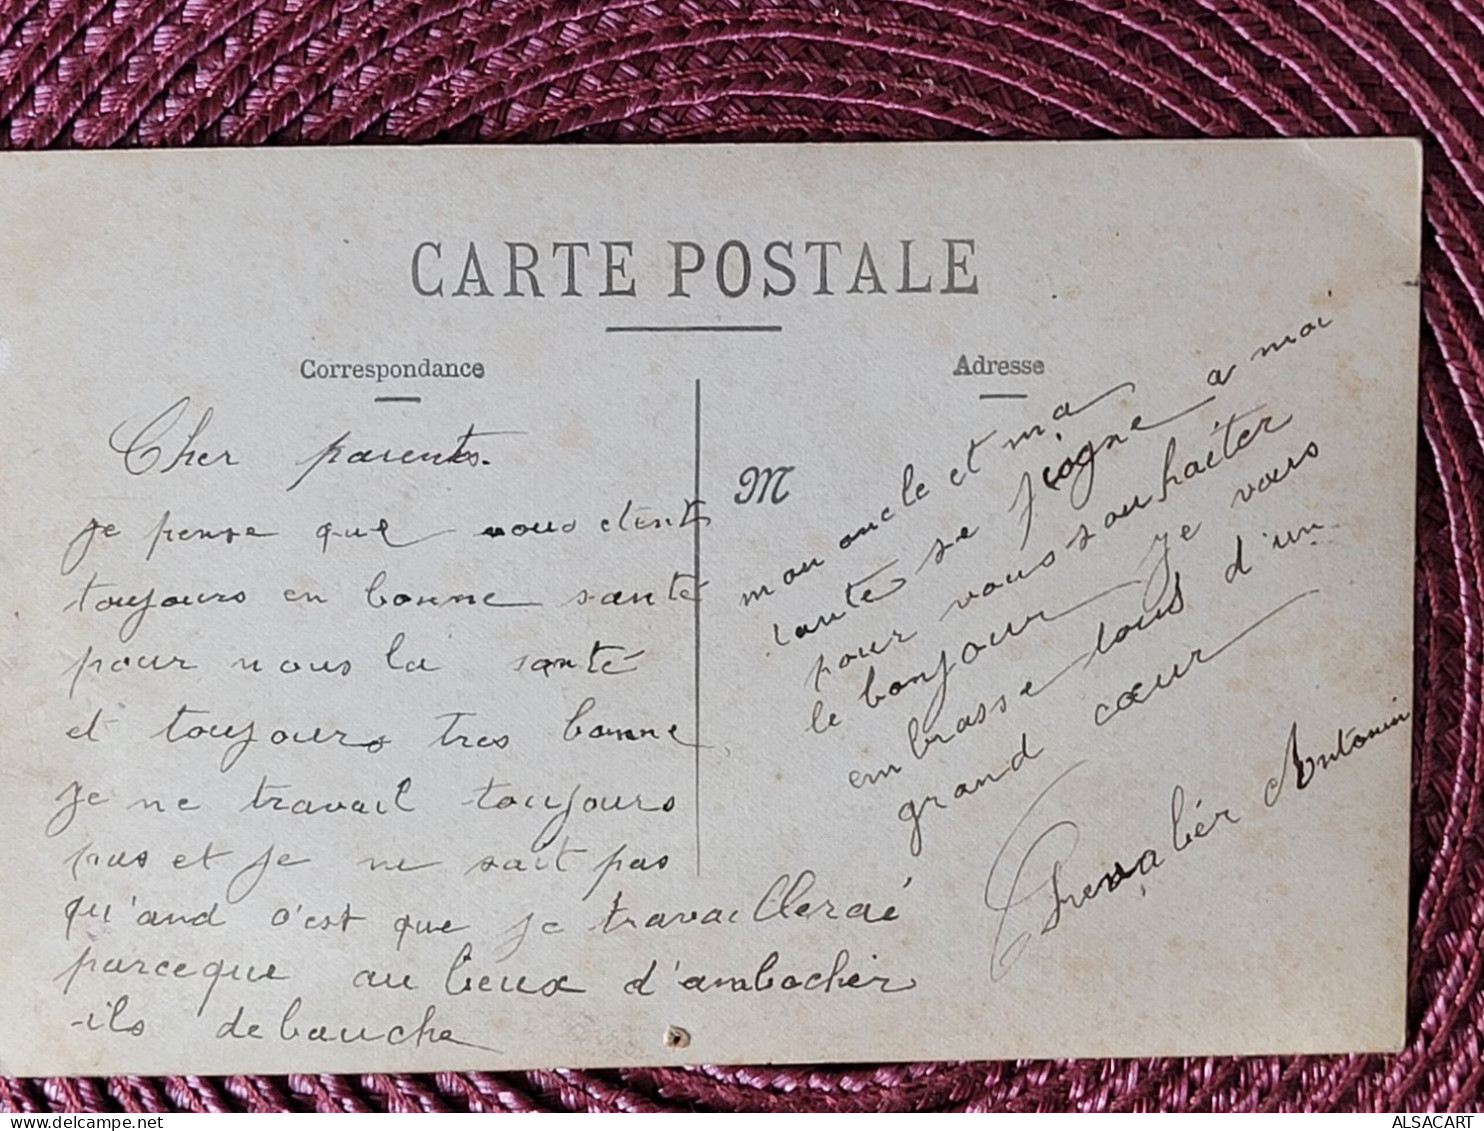 CARTE POSTALE
Correspondance
Adresse
Cher parents.
je pense que vous etent
toujours en bonne santé
pour nous la santé
et toujours tres bonne
je ne travail toujours
pas et je ne sait pas
qu'and c'est que je travaillerai
parceque au lieux d'ambocher
ils debauche
M
mon oncle et ma
tante se joigne a moi
pour vous souhaiter
le bonjour je vous
embrasse tous d'un
grand cœur
Chevalier Antonin
ALSACART